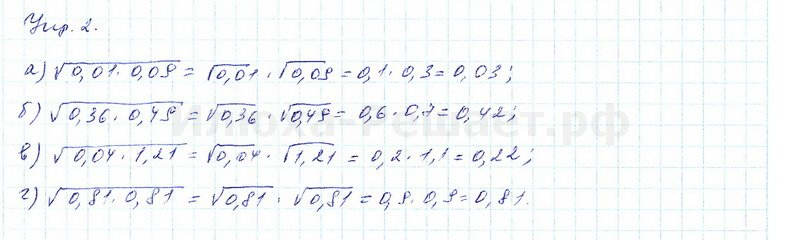 Упр. 2.
а) √0,01 · 0,09 = √0,01 · √0,09 = 0,1 · 0,3 = 0,03;
б) √0,36 · 0,49 = √0,36 · √0,49 = 0,6 · 0,7 = 0,42;
в) √0,04 · 1,21 = √0,04 · √1,21 = 0,2 · 1,1 = 0,22;
г) √0,81 · 0,81 = √0,81 · √0,81 = 0,9 · 0,9 = 0,81.